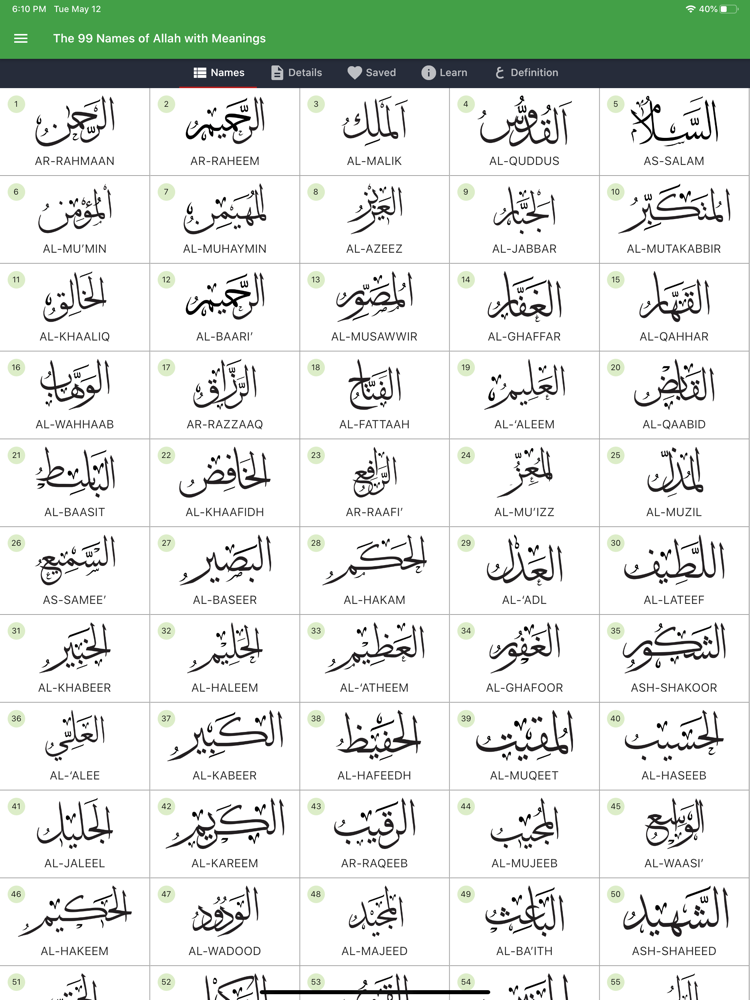 6:10 PM Tue May 12
40%
The 99 Names of Allah with Meanings
Names Details Saved Learn Definition
1
الرحمن
AR-RAHMAAN
2
الرحيم
AR-RAHEEM
3
الملك
AL-MALIK
4
القدوس
AL-QUDDUS
5
السلام
AS-SALAM
6
المؤمن
AL-MU’MIN
7
المهيمن
AL-MUHAYMIN
8
العزيز
AL-AZEEZ
9
الجبار
AL-JABBAR
10
المتكبر
AL-MUTAKABBIR
11
الخالق
AL-KHAALIQ
12
الرحيم
AL-BAARI’
13
المصور
AL-MUSAWWIR
14
الغفار
AL-GHAFFAR
15
القهار
AL-QAHHAR
16
الوهاب
AL-WAHHAAB
17
الرزاق
AR-RAZZAAQ
18
الفتاح
AL-FATTAAH
19
العليم
AL-‘ALEEM
20
القابض
AL-QAABID
21
الباسط
AL-BAASIT
22
الخافض
AL-KHAAFIDH
23
الرافع
AR-RAAFI’
24
المعز
AL-MU’IZZ
25
المذل
AL-MUZIL
26
السميع
AS-SAMEE’
27
البصير
AL-BASEER
28
الحكم
AL-HAKAM
29
العدل
AL-‘ADL
30
اللطيف
AL-LATEEF
31
الخبير
AL-KHABEER
32
الحليم
AL-HALEEM
33
العظيم
AL-‘ATHEEM
34
الغفور
AL-GHAFOOR
35
الشكور
ASH-SHAKOOR
36
العلي
AL-‘ALEE
37
الكبير
AL-KABEER
38
الحفيظ
AL-HAFEEDH
39
المقيت
AL-MUQEET
40
الحسيب
AL-HASEEB
41
الجليل
AL-JALEEL
42
الكريم
AL-KAREEM
43
الرقيب
AR-RAQEEB
44
المجيب
AL-MUJEEB
45
الواسع
AL-WAASI’
46
الحكيم
AL-HAKEEM
47
الودود
AL-WADOOD
48
المجيد
AL-MAJEED
49
الباعث
AL-BA’ITH
50
الشهيد
ASH-SHAHEED
51
52
53
54
55